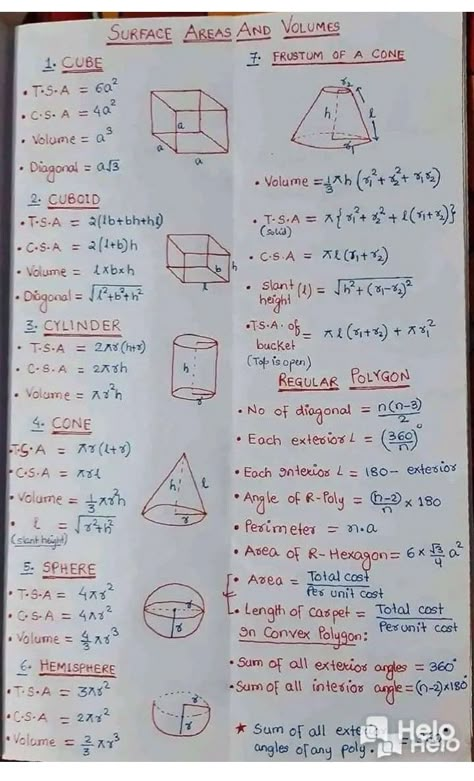 SURFACE AREAS AND VOLUMES
1. CUBE
• T.S.A = 6a²
• C.S.A = 4a²
• Volume = a³
• Diagonal = a√3
a
a
a
2. CUBOID
• T.S.A = 2(lb+bh+hl)
• C.S.A = 2(l+b)h
• Volume = l×b×h
• Diagonal = √l²+b²+h²
b
h
l
3. CYLINDER
• T.S.A = 2πr(h+r)
• C.S.A = 2πrh
• Volume = πr²h
h
r
4. CONE
• T.S.A = πr(l+r)
• C.S.A = πrl
• Volume = 1/3 πr²h
• l = √r²+h²
(slant height)
h
l
r
5. SPHERE
• T.S.A = 4πr²
• C.S.A = 4πr²
• Volume = 4/3 πr³
r
r
6. HEMISPHERE
• T.S.A = 3πr²
• C.S.A = 2πr²
• Volume = 2/3 πr³
r
r
7. FRUSTUM OF A CONE
r₂
h
l
r₁
• Volume = 1/3 πh (r₁²+r₂²+r₁r₂)
• T.S.A = π{r₁²+r₂²+l(r₁+r₂)}
(solid)
• C.S.A = πl(r₁+r₂)
• slant height (l) = √h²+(r₁-r₂)²
• T.S.A. of bucket = πl(r₁+r₂) + πr₁²
(Top is open)
REGULAR POLYGON
• No of diagonal = n(n-3)/2
• Each exterior L = (360/n)°
• Each interior L = 180 - exterior
• Angle of R-Poly = (n-2)/n × 180
• Perimeter = n.a
• Area of R-Hexagon = 6 × √3/4 a²
• Area = Total cost/Per unit cost
• Length of carpet = Total cost/Per unit cost
In Convex Polygon:
• Sum of all exterior angles = 360°
• Sum of all interior angle = (n-2)×180°
★ Sum of all
angles of any poly.
Helo
Helo